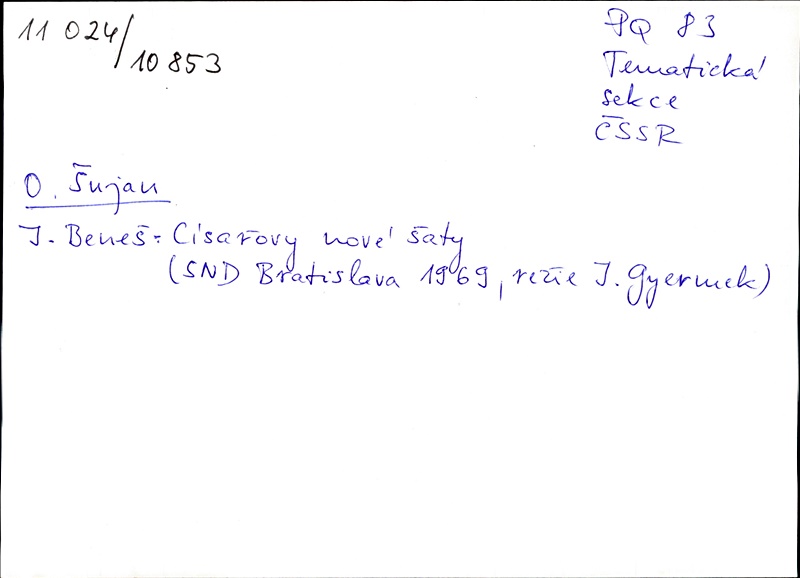 11 024/
10 853
PQ 83
Tematická
sekce
ČSSR
O. Šujan
J. Beneš: Císařovy nové šaty
(SND Bratislava 1969, režie J. Gyermek)